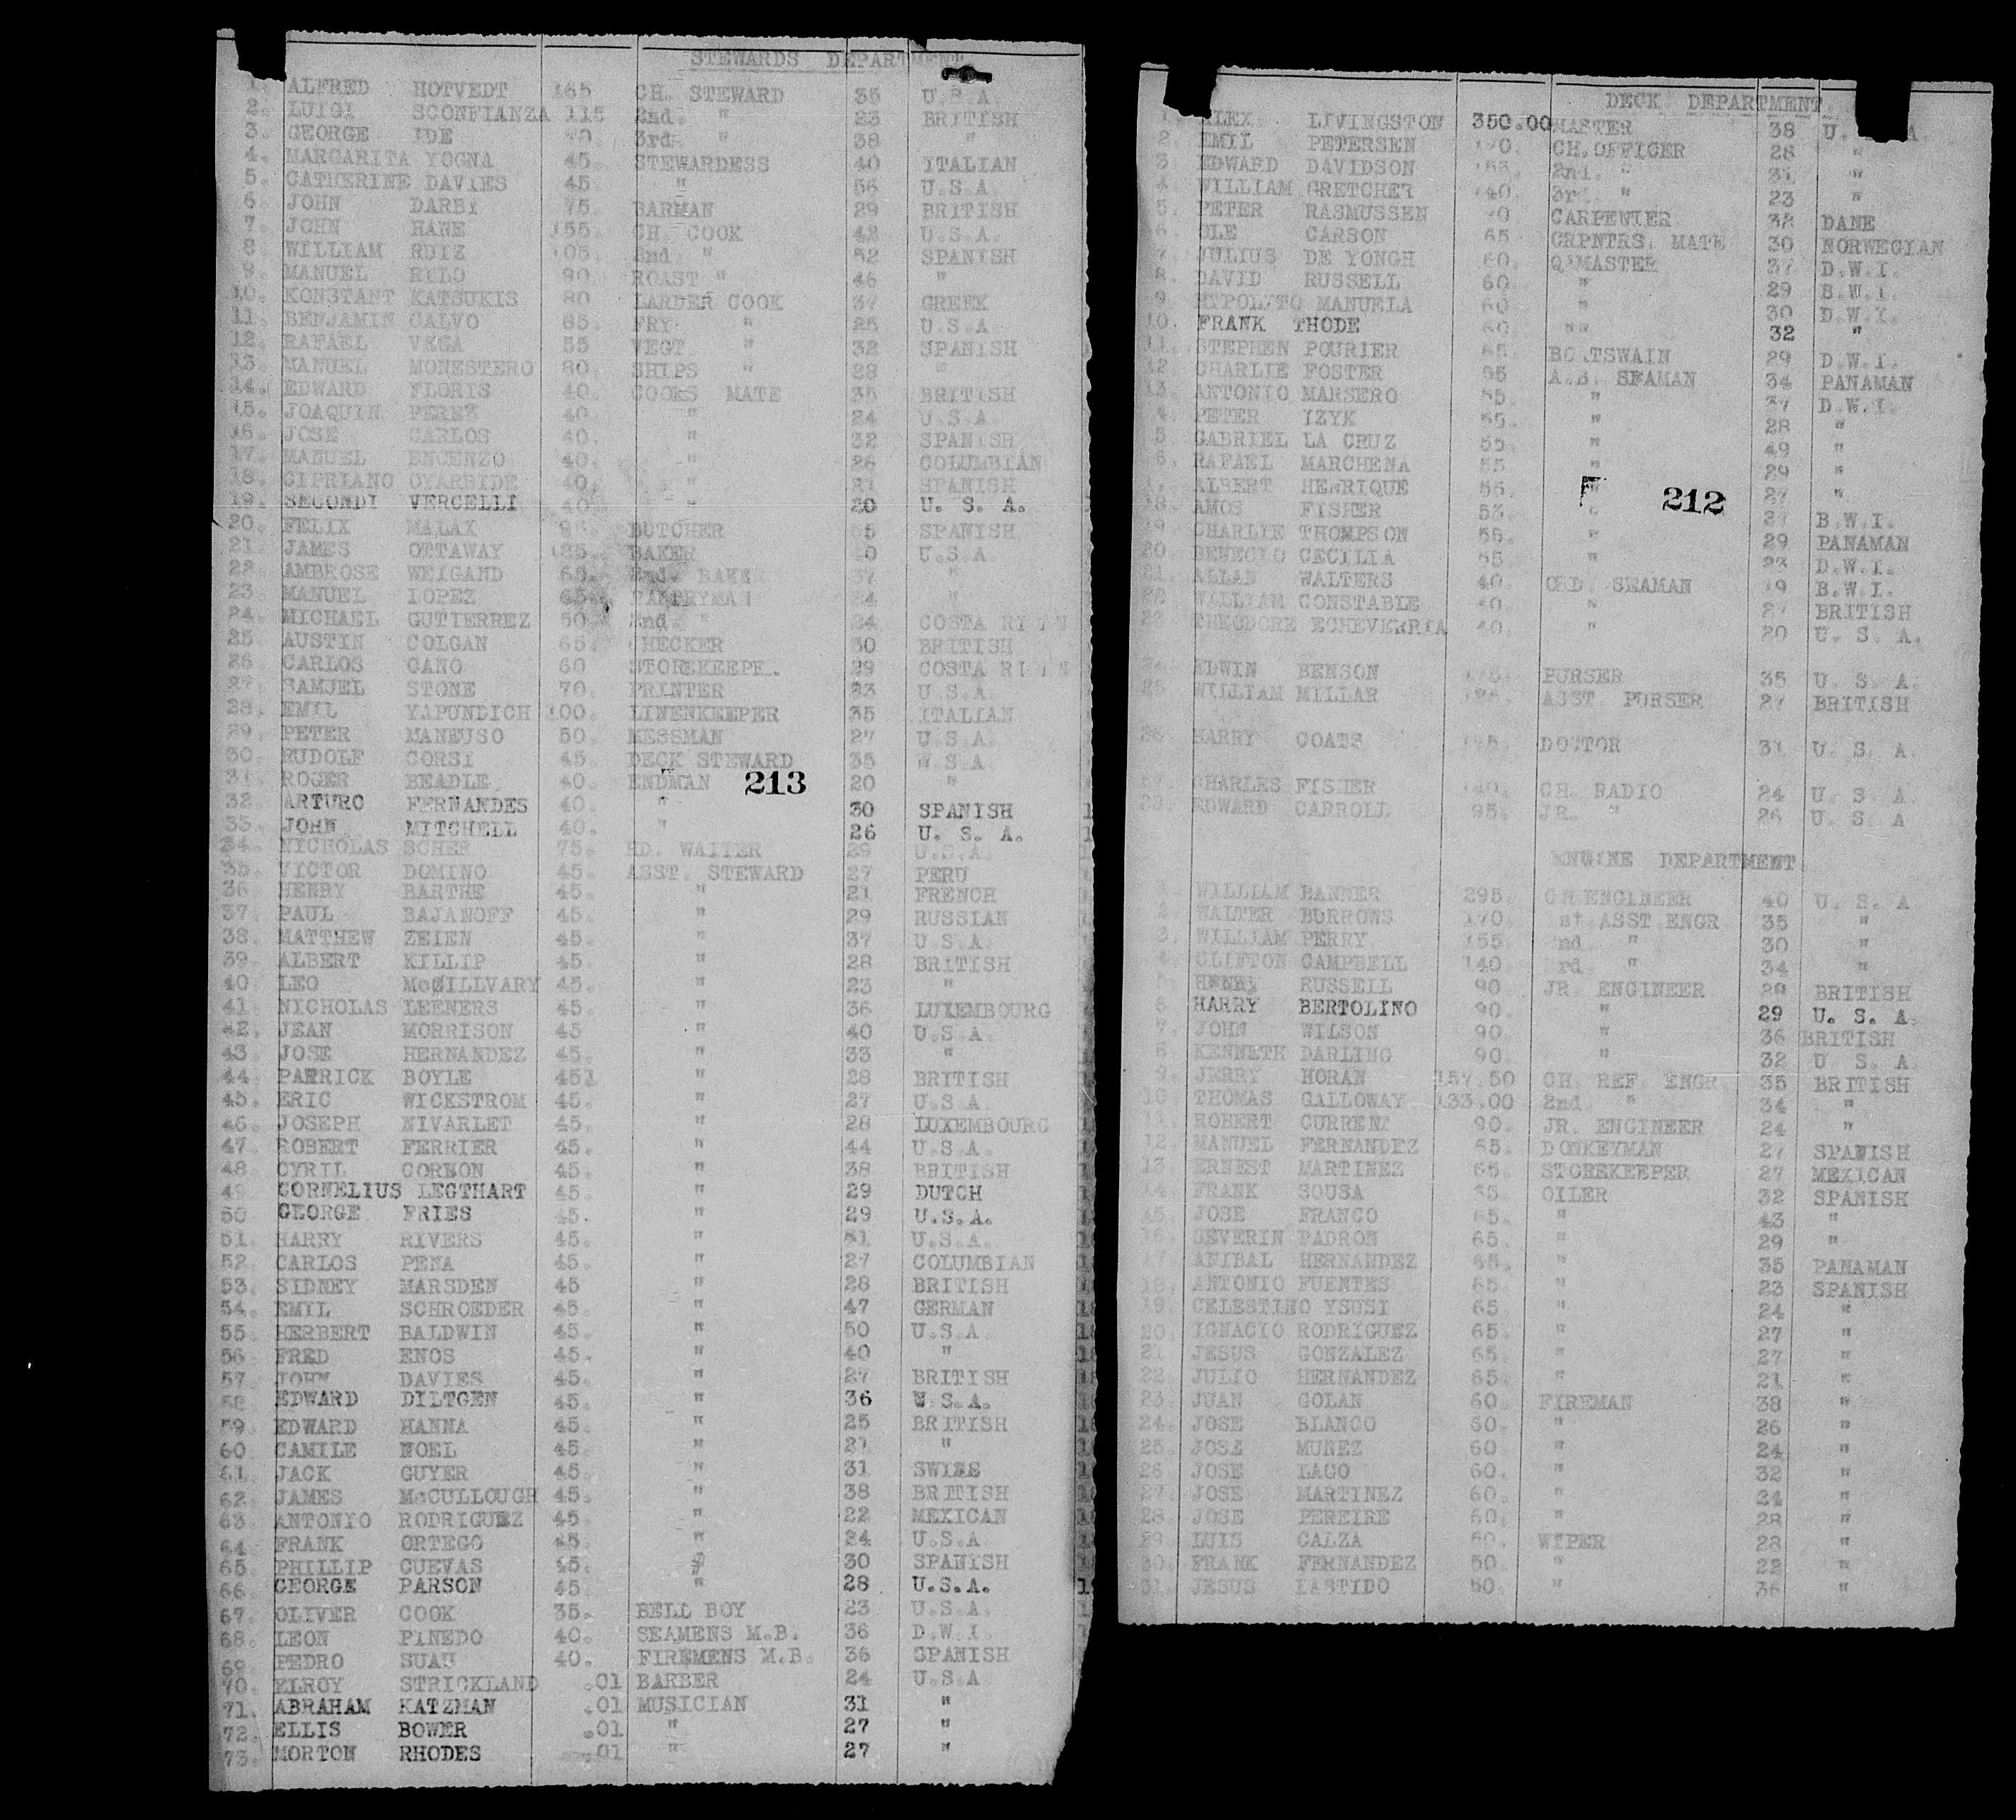 STEWARDS DEPARTMENT
1. ALFRED HOTVEDT 165 CH. STEWARD 35 U.S.A.
2. LUIGI SCONFIANZA 115 2nd. " 23 BRITISH
3. GEORGE IDE 70. 3rd. " 38 "
4. MARGARITA YOGNA 45. STEWARDESS 40 ITALIAN
5. CATHERINE DAVIES 45 " 56 U.S.A.
6. JOHN DARBY 75. BARMAN 29 BRITISH
7. JOHN HANE 155. CH. COOK 42 U.S.A.
8. WILLIAM RUIZ 105. 2nd. " 52 SPANISH
9. MANUEL RILO 90. ROAST " 46 "
10. KONSTANT KATSUKIS 80 LARDER COOK 37 GREEK
11. BENJAMIN CALVO 65. FRY " 25 U.S.A
12. RAFAEL VEGA 55 VEGT " 32 SPANISH
13. MANUEL MONESTERO 80. SHIPS " 28 "
14. EDWARD FLORIS 40. COOKS MATE 35 BRITISH
15. JOAQUIN PEREZ 40. " 24 U.S.A.
16. JOSE CARLOS 40. " 32 SPANISH
17. MANUEL ENCENZO 40. " 26 COLUMBIAN
18. CIPRIANO OYARBIDE 40. " 21 SPANISH
19. SECONDI VERCELLI 40. " 20 U. S. A.
20. FELIX MALAX BUTCHER SPANISH
21. JAMES OTTAWAY BAKER 40 U.S.A
22 AMBROSE WEIGAND 65. 2nd. BAKE 37 "
23 MANUEL LOPEZ 65. PANTRYMAN 24 "
24. MICHAEL GUTIERREZ 50. 2nd " 24 COSTA RICAN
25. AUSTIN COLGAN 65. CHECKER 30 BRITISH
26 CARLOS CANO 60 STOREKEEPE. 29 COSTA RICAN
27. SAMUEL STONE 70. PRINTER 23 U.S.A.
28. EMIL YAPUNDICH 100. LINENKEEPER 35 ITALIAN
29. PETER MANEUSO 50. MESSMAN 27 U.S.A.
30. RUDOLF CORSI 45. DECK STEWARD 35 U.S.A
31. ROGER BEADLE 40. ENDMAN 213 20 "
32. ARTURO FERNANDES 40. " 30 SPANISH
33. JOHN MITCHELL 40. " 26 U. S. A.
34. NICHOLAS SCHER 75. HD. WAITER 29 U.S.A.
35. VICTOR DOMINO 45. ASST. STEWARD 27 PERU
36. HENRY BARTHE 45. " 21 FRENCH
37. PAUL BAJANOFF 45. " 29 RUSSIAN
38. MATTHEW ZEIEN 45. " 37 U.S.A.
39. ALBERT KILLIP 45. " 28 BRITISH
40. LEO McGILLVARY 45. " 23 "
41. NICHOLAS LEENERS 45. " 36 LUXEMBOURG
42. JEAN MORRISON 45 " 40 U.S.A.
43. JOSE HERNANDEZ 45. " 33 "
44. PARRICK BOYLE 451 " 28 BRITISH
45. ERIC WICKSTROM 45. " 27 U.S.A
46. JOSEPH NIVARLET 45. " 28 LUXEMBOURG
47. ROBERT FERRIER 45. " 44 U.S.A.
48. CYRIL CORMON 45. " 38 BRITISH
49. CORNELIUS LEGTHART 45. " 29 DUTCH
50 GEORGE FRIES 45. " 29 U.S.A.
51. HARRY RIVERS 45. " U.S.A.
52. CARLOS PENA 45. " 27 COLUMBIAN
53. SIDNEY MARSDEN 45 " 28 BRITISH
54. EMIL SCHROEDER 45. " 47 GERMAN
55. HERBERT BALDWIN 45. " 50 U.S.A.
56 FRED ENOS 45. " 40 "
57. JOHN DAVIES 45. " 27 BRITISH
58. EDWARD DILTGEN 45. " 36 U.S.A.
59. EDWARD HANNA 45. " 25 BRITISH
60. CAMILE NOEL 45. " 21 "
61. JACK GUYER 45. " 31 SWISS
62. JAMES McCULLOUGH 45. " 38 BRITISH
63. ANTONIO RODRIGUEZ 45. " 22 MEXICAN
64. FRANK ORTEGO 45. " 24 U.S.A
65. PHILLIP CUEVAS 45. " 30 SPANISH
66. GEORGE PARSON 45. " 28 U.S.A.
67. OLIVER COOK 35. BELL BOY 23 U.S.A.
68. LEON PINEDO 40. SEAMENS M.B. 36 D.W.I.
69. PEDRO SUAU 40. FIREMENS M.B. 36 SPANISH
70. ELROY STRICKLAND .01 BARBER 24 U.S.A
71. ABRAHAM KATZMAN .01 MUSICIAN 31 "
72. ELLIS BOWER .01 " 27 "
73. MORTON RHODES .01 " 27 "
DECK DEPARTMENT.
1. ALEX LIVINGSTON 350.00 MASTER 38 U. A.
2. EMIL PETERSEN 170. CH.OFFICER 28 "
3. EDWARD DAVIDSON 155. 2nd. " 31 "
4. WILLIAM GRETCHER 140. 3rd. " 23 "
5. PETER RASMUSSEN 70 CARPENTER 38 DANE
6. OLE CARSON 65 CRPNTRS. MATE 30 NORWEGIAN
7. JULIUS DE YONGH 60. Q'MASTER 37 D.W.I.
8. DAVID RUSSELL 60. " 29 B.W.I.
9. HYPOLITO MANUELA 60 " 30 D.W.I.
10. FRANK THODE 60. "" 32 "
11. STEPHEN POURIER 65. BOATSWAIN 29 D.W.I.
12. CHARLIE FOSTER 55 A.B. SEAMAN 34 PANAMAN
13. ANTONIO MARSERO 55. " 37 D.W.I.
4. PETER IZYK 55. " 28 "
5 GABRIEL LA CRUZ 55. " 49 "
6. RAFAEL MARCHENA 55 " 29 "
ALBERT HENRIQUE 55. " 212 27 "
18. AMOS FISHER 53. " 27 B.W.I.
19. CHARLIE THOMPSON 55. " 29 PANAMAN
20. BENECIO CECILIA 55 " 23 D.W.I.
21. ALLAN WALTERS 40. ORD. SEAMAN 19 B.W.I.
22 WILLIAM CONSTABLE 40. " 27 BRITISH
23. THEODORE ECHEVERRIA 40. " 20 U. S. A.
24. EDWIN BENSON 175. PURSER 35 U. S. A.
25 WILLIAM MILLAR 125. ASST. PURSER 27 BRITISH
26. HARRY COATS DOCTOR 31 U. S. A.
27. CHARLES FISHER 140. CH. RADIO 24 U. S. A.
28. EDWARD CARROLL 95. JR. " 26 U. S. A
ENGINE DEPARTMENT.
1. WILLIAM BANNER 295. CH ENGINEER 40 U. S. A.
2. WALTER BURROWS 170. 1st ASST ENGR 35 "
3. WILLIAM PERRY 155 2nd " 30 "
4. CLIFTON CAMPBELL 140 3rd. " 34 "
5. HENRY RUSSELL 90 JR. ENGINEER 29 BRITISH
6 HARRY BERTOLINO 90. " 29 U. S. A.
7. JOHN WILSON 90. " 36 BRITISH
8. KENNETH DARLING 90. " 32 U. S. A.
9. JERRY HORAN 157.50 CH. REF. ENGR. 35 BRITISH
10 THOMAS GALLOWAY 133.00 2nd " 34 "
11 ROBERT CURRENT 90. JR. ENGINEER 24 "
12 MANUEL FERNANDEZ 65. DONKEYMAN 27 SPANISH
13. ERNEST MARTINEZ 65. STOREKEEPER 27 MEXICAN
14. FRANK SOUSA 65. OILER 32 SPANISH
15. JOSE FRANCO 65. " 43 "
16. SEVERIN PADRON 65. " 29 "
17 ANIBAL HERNANDEZ 65. " 35 PANAMAN
18. ANTONIO FUENTES 65. " 23 SPANISH
19. CELESTINO YSUSI 65 " 24 "
20. IGNACIO RODRIGUEZ 65. " 27 "
21. JESUS GONZALEZ 65. " 27 "
22. JULIO HERNANDEZ 65. " 21 "
23. JUAN GOLAN 60. FIREMAN 38 "
24. JOSE BLANCO 60. " 26 "
25. JOSE MUNEZ 60 " 24 "
26 JOSE LAGO 60. " 32 "
27. JOSE MARTINEZ 60. " 24 "
28. JOSE PEREIRE 60. " 28 "
29 LUIS CALZA 50. WIPER 28 "
30. FRANK FERNANDEZ 50. " 22 "
31. JESUS LASTIDO 50. " 36 "